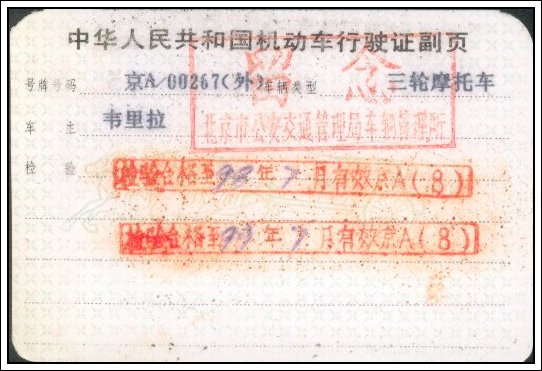 中华人民共和国机动车行驶证副页
留念
号牌号码 京A/00267(外) 车辆类型 三轮摩托车
北京市公安交通管理局车辆管理所
车主 韦里拉
检验
检验合格至93年7月有效京A(8)
检验合格至93年7月有效京A(8)